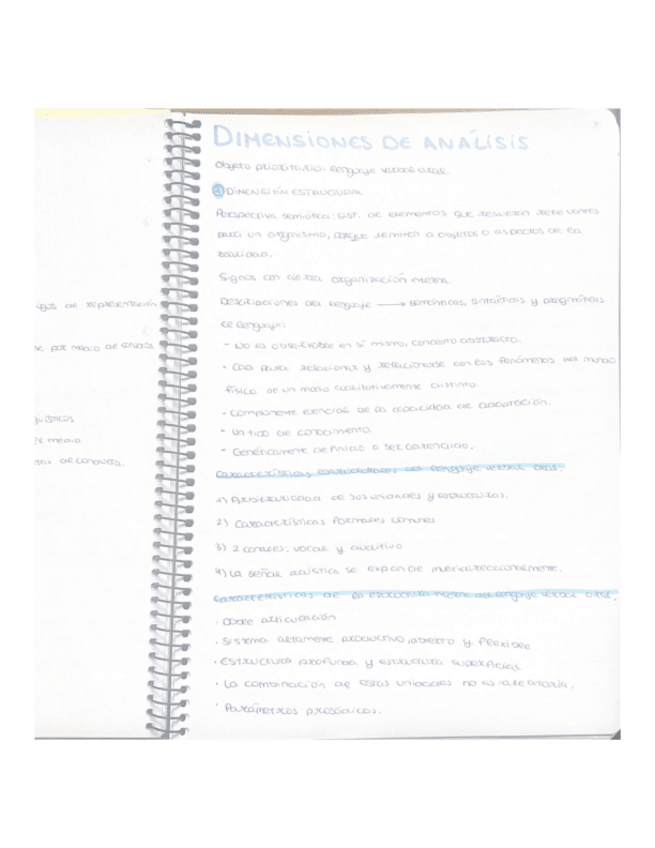 ugos de representación
se por medio de envases
guísticos
te medio
de conducta.
DIMENSIONES DE ANÁLISIS
Objeto prioritario: lenguaje verbal oral.
1 DIMENSIÓN ESTRUCTURAL
Perspectiva semiótica: sist. de elementos que resultan relevantes
para un organismo, porque remiten a objetos o aspectos de la
realidad.
Signos con cierta organización interna.
Descripciones del lenguaje → semánticas, sintácticas y pragmáticas
El lenguaje:
- No es observable en sí mismo, concepto abstracto.
- para relacionar y relacionarse con los fenómenos del mundo
físico de un modo cualitativamente distinto.
- Componente esencial de la capacidad de adaptación.
- Un tipo de conocimiento.
- Genéticamente definido o ser
Características estructurales del lenguaje verbal oral:
1) Arbitrariedad de sus unidades y estructuras.
2) Características formales comunes.
3) 2 canales: vocal y auditivo
4) La señal acústica se expande
Características de la estructura interna del lenguaje verbal oral.
· Doble articulación
· Sistema altamente productivo, abierto y flexible
· Estructura profunda y estructura superficial
· La combinación de estas unidades no es aleatoria.
· Parámetros prosódicos.